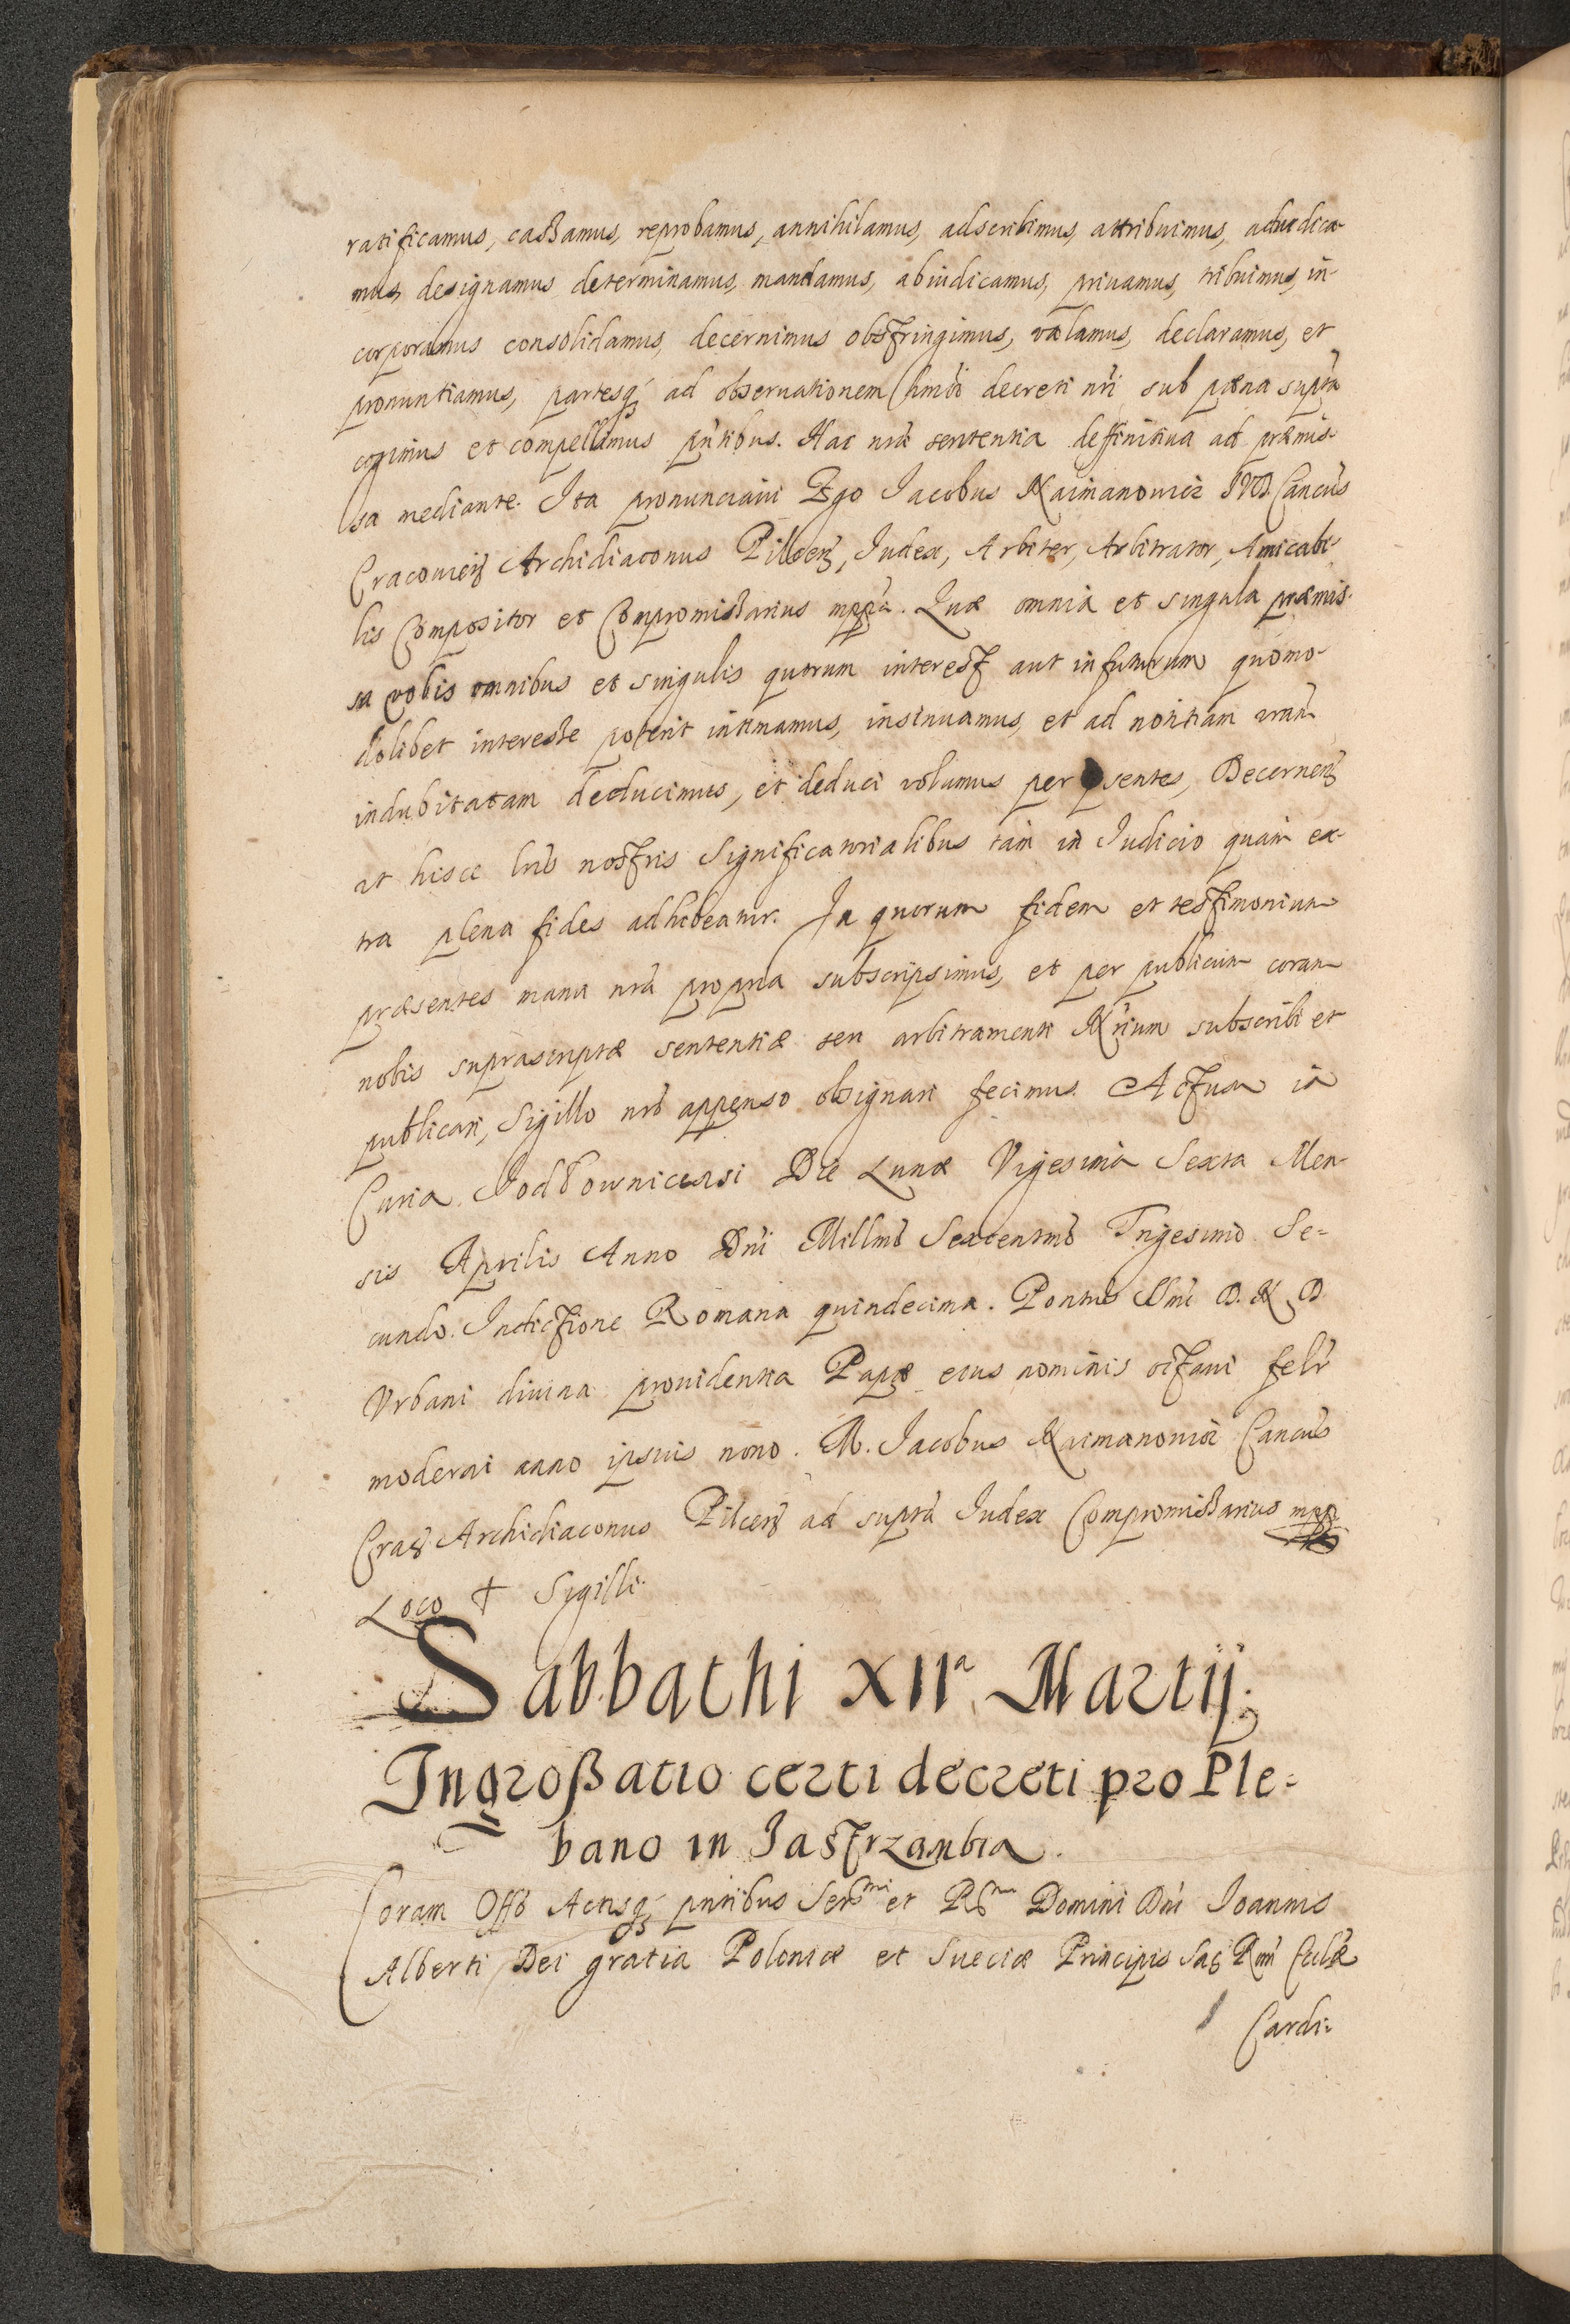 ratificamus, cassamus, reprobamus, annihilamus, adscribimus, attribuimus, adiudica-
mus, designamus determinamus, mandamus, abiudicamus, priuamus, tribuimus, in-
corporamus consolidamus, decernimus obstringimus, valamus, declaramus, et
pronuntiamus, partesq; ad obseruationem hmoi decreti nri sub pœna supra
cogimus et compellimus pntibus. Hac nra sententia deffinitiua ad præmis-
sa mediante. Ita pronunciaui Ego Iacobus Naimanowicz IVD. Cancus
Cracouien Archidiaconus Pilcen, Iudex, Arbiter, Arbitrator, Amicabi-
lis Compositor et Compromissarius mppa. Quæ omnia et singula præmis-
sa vobis omnibus et singulis quorum interest aut in futurum quomo-
dolibet interesse poterit intimamus, insinuamus, et ad notitiam vram
indubitatam deducimus, et deduci volumus per psentes, Decernen
ut hisce lris nostris Significatorialibus tam in Iudicio quam ex-
tra plena fides adhibeatur. In quorum fidem et testimonium
præsentes manu nra propria subscripsimus, et per publicum coram
nobis suprascriptæ sententiæ seu arbitramenti Nrium subscribi et
publicari, Sigillo nro appenso obsignari fecimus. Actum in
Curia Die Lunæ Vigesima Sexta Men-
sis Aprilis Anno Dni Millmo Sexcentmo Trigesimo Se=
cundo. Indictione Romana quindecima. Pontus Smi D. N. D.
Vrbani diuina prouidentia Papæ eius nominis octaui felr
moderni anno ipsius nono. M. Iacobus Naimanowicz Cancus
Cracn Archidiaconus Pilcen ad supra Iudex Compromissarius mpp
Loco † Sigilli.
Sabbathi XIIa Martij.
Ingroßatio certi decreti pro Ple=
bano in Iastrzambia.
Coram Offo Actisq; pntibus Sermi et Rmi Domini Dni Ioannis
Alberti Dei gratia Poloniæ et Sueciæ Principis Sac Rom Eccliæ
Cardi=